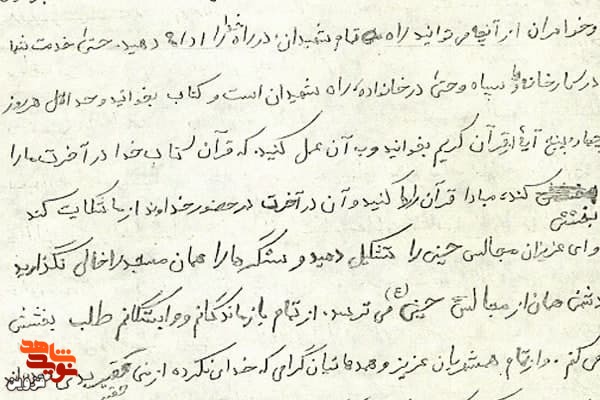 و خواهران از آنچه می توانید راه به تمام شهیدان در راه خدا را ادامه دهید. حتی خدمت شما
در کارخانه و یا سپاه و حتی در خانواده راه شهیدان است و کتاب بخوانید و حداقل هر روز
چهار پنج آیه از قرآن کریم بخوانید و به آن عمل کنید. که قرآن کتاب خدا در آخرت ما را
کند، مبادا قرآن را رها کنید و آن در آخرت در حضور خداوند از ما شکایت کند
بخششی
و ای عزیزان مجالس حسینی را تشکیل دهید و سنگرها را همان مسجد را خالی نگذارید
دشمن همان از مجالس حسینی (ع) می ترسد. از تمام بازماندگانم و وابستگانم طلب بخشش
می کنم. و از تمام همشهریان عزیز و همدهاتیان گرامی که خدای نکرده از من تقصیر بدی
شاهد
نوید